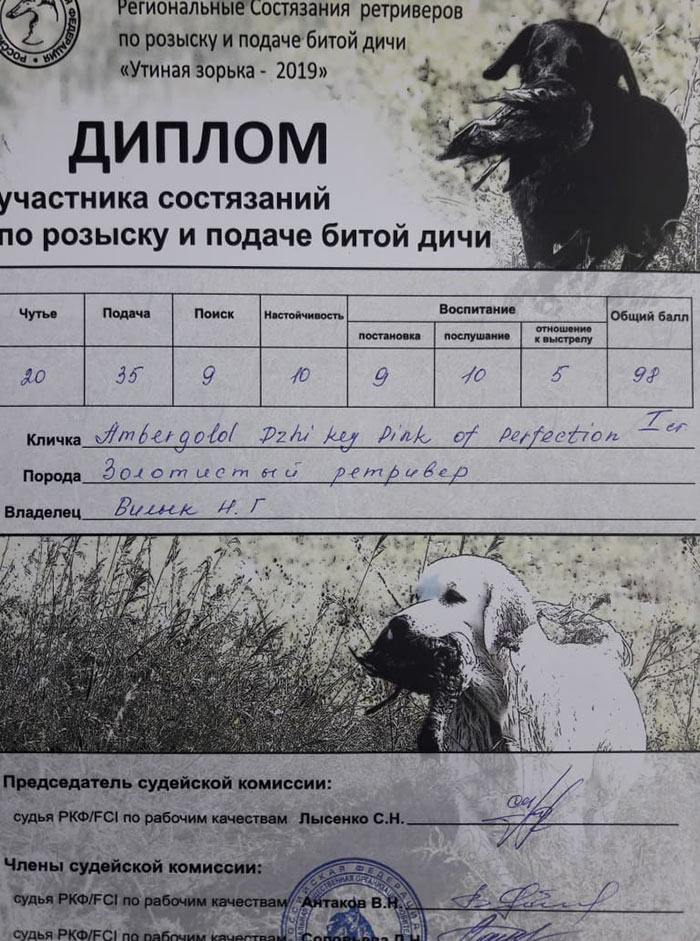 Региональные Состязания ретриверов
по розыску и подаче битой дичи
«Утиная зорька - 2019»
ДИПЛОМ
участника состязаний
по розыску и подаче битой дичи
Чутье Подача Поиск Настойчивость Воспитание Общий балл
постановка послушание отношение к выстрелу
20 35 9 10 9 10 5 98
Кличка Ambergold Dzhi Key Pink of Perfection I ст.
Порода Золотистый ретривер
Владелец Вилык Н. Г
Председатель судейской комиссии:
судья РКФ/FCI по рабочим качествам Лысенко С.Н.
Члены судейской комиссии:
судья РКФ/FCI по рабочим качествам Антаков В.Н.
судья РКФ/FCI по рабочим качествам Соловьева Л.Н.